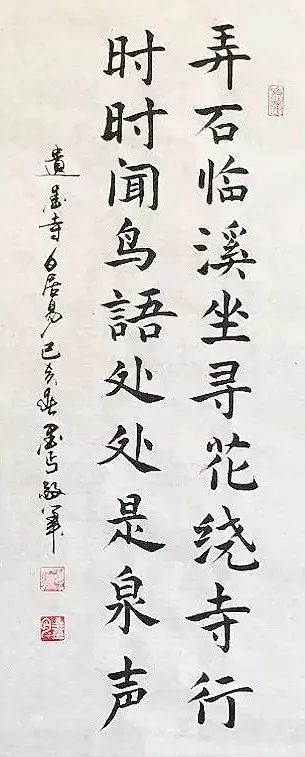 弄石临溪坐寻花绕寺行
时时闻鸟語处处是泉声
遗爱寺白居易己亥春墨与敬军